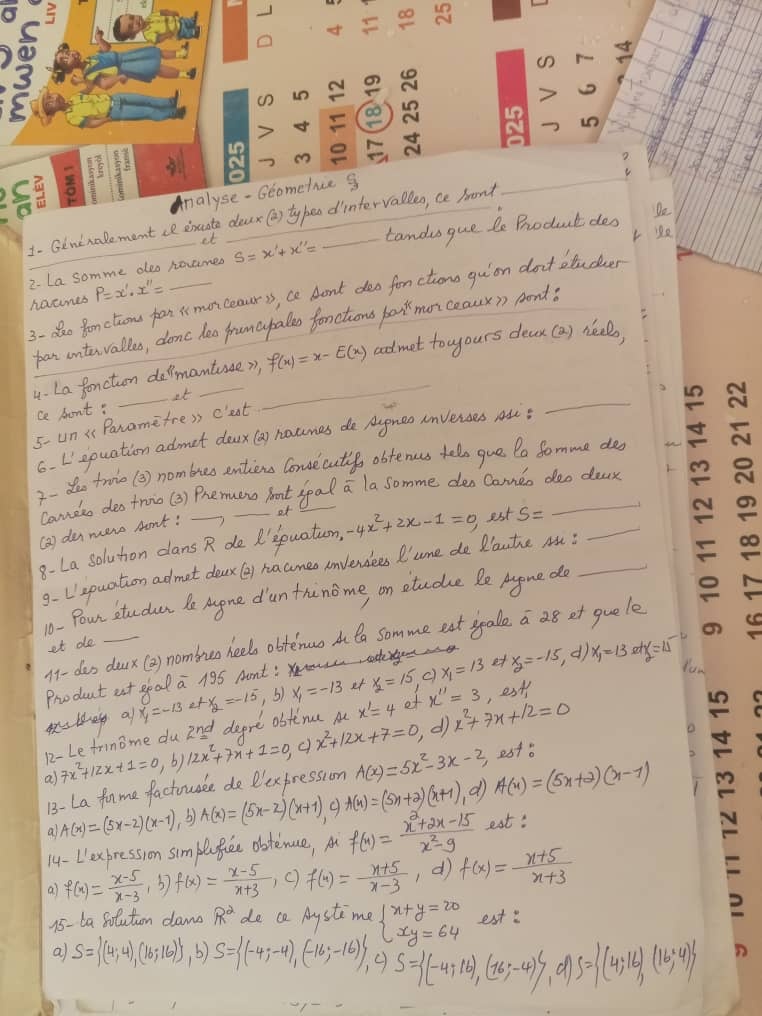 mwen
LIV
ELÈV
TÒM 1
025
D L
J V S
3 4 5
10 11 12
17 18 19
24 25 26
4
11
18
25
025
J V S
5 6 7
14
Analyse - Géometrie
1- Généralement il éxiste deux (2) types d'intervalles, ce sont
____ et ____
2- La somme des racines S = x' + x'' = ____ tandis que le Produit des
racines P = x' . x'' = ____
3- Les fonctions par « morceaux », ce sont des fonctions qu'on doit étudier
par intervalles, donc les principales fonctions par "morceaux" sont :
4- La fonction de "mantisse", f(x) = x - E(x) admet toujours deux (2) réels,
ce sont : ____ et ____
5- un « Paramètre » c'est ____
6- L'équation admet deux (2) racines de signes inverses ssi : ____
7- Les trois (3) nombres entiers Consécutifs obtenus tels que la Somme des
Carrées des trois (3) Premiers soit égal à la somme des Carrés des deux
(2) derniers sont : ____, ____ et ____
8- La solution dans R de l'équation, -4x² + 2x - 1 = 0, est S = ____
9- L'équation admet deux (2) racines inversées l'une de l'autre ssi : ____
10- Pour étudier le signe d'un trinôme, on étudie le signe de ____
et de ____
11- des deux (2) nombres réels obténus si la somme est égale à 28 et que le
Produit est égal à 195 sont :
a) x₁ = -13 et x₂ = -15, b) x₁ = -13 et x₂ = 15, c) x₁ = 13 et x₂ = -15, d) x₁ = 13 et x₂ = 15
12- Le trinôme du 2nd degré obténue si x' = 4 et x'' = 3, est,
a) 7x² + 12x + 1 = 0, b) 12x² + 7x + 1 = 0, c) x² + 12x + 7 = 0, d) x² + 7x + 12 = 0
13- La forme factorisée de l'expression A(x) = 5x² - 3x - 2, est :
a) A(x) = (5x-2)(x-1), b) A(x) = (5x-2)(x+1), c) A(x) = (5x+2)(x+1), d) A(x) = (5x+2)(x-1)
14- L'expression simplifiée obténue, si f(x) = (x²+2x-15)/(x²-9) est :
a) f(x) = (x-5)/(x-3), b) f(x) = (x-5)/(x+3), c) f(x) = (x+5)/(x-3), d) f(x) = (x+5)/(x+3)
15- La Solution dans R² de ce système { x+y = 20
xy = 64 est :
a) S = {(4;4), (16;16)}, b) S = {(-4;-4), (-16;-16)}, c) S = {(-4;16), (16;-4)}, d) S = {(4;16), (16;4)}
9 10 11 12 13 14 15
16 17 18 19 20 21 22
9 10 11 12 13 14 15